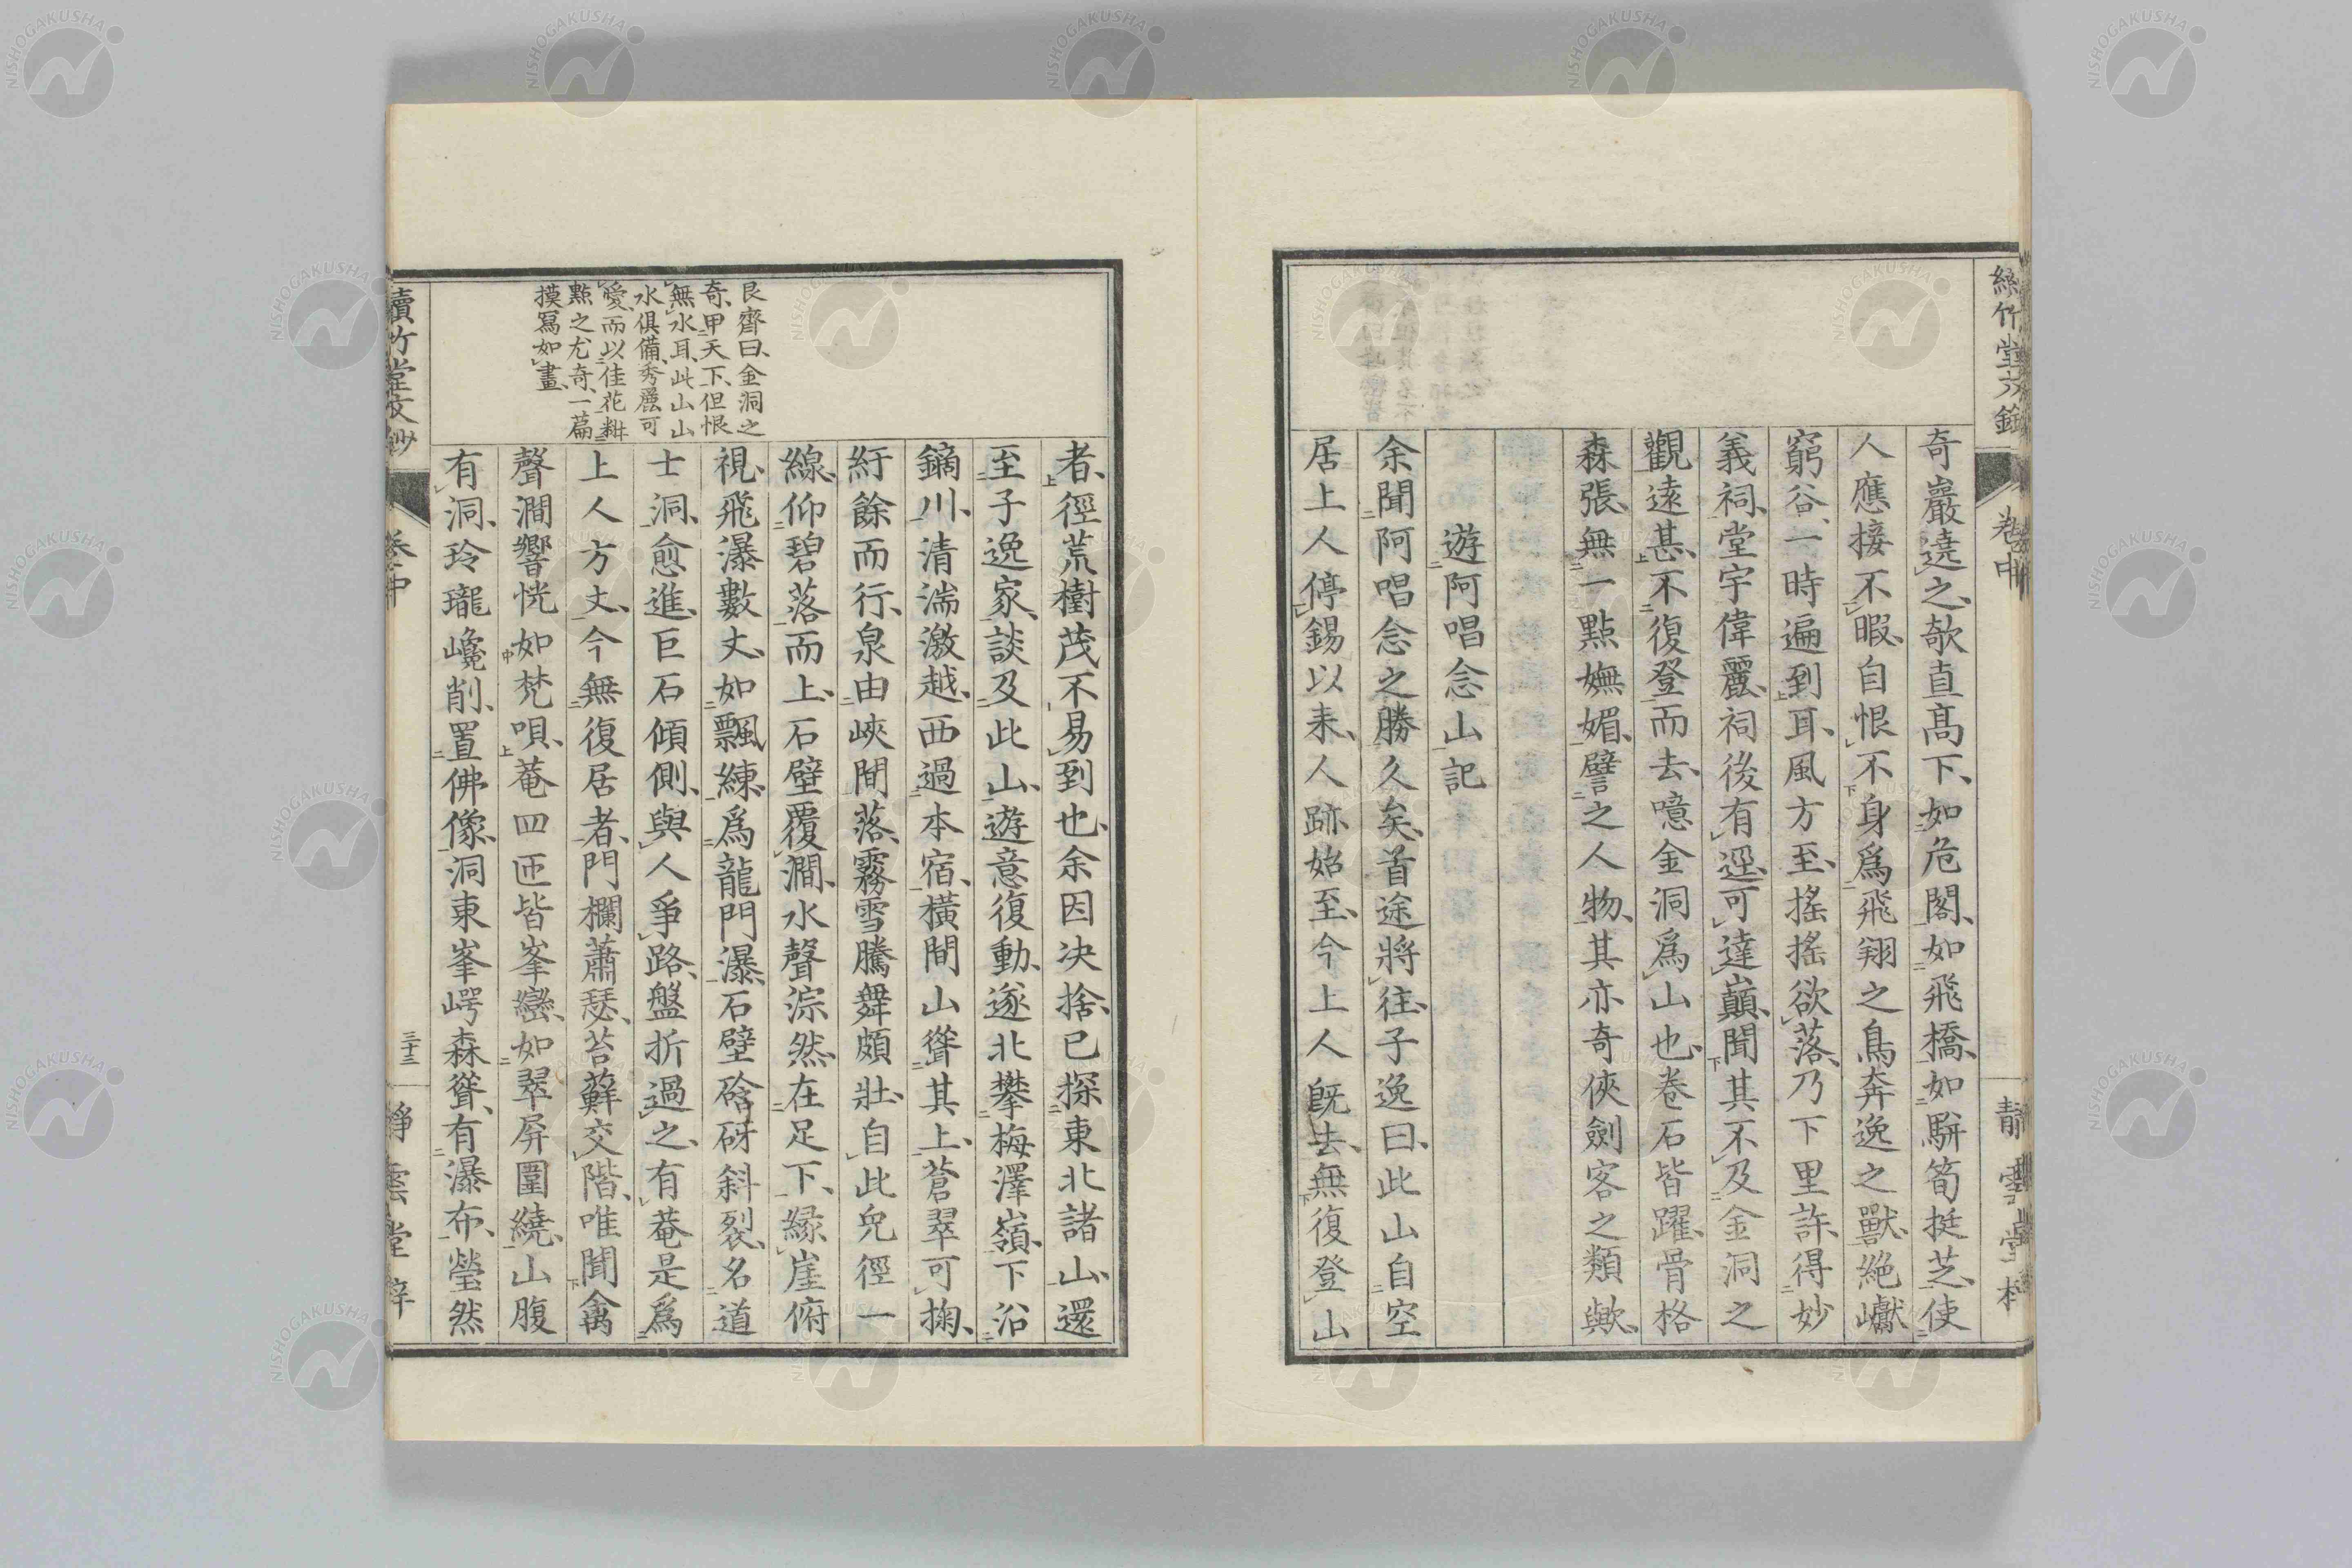 奇巖遶之、欹直高下、如危閣、如飛橋、如駢筍挺芝、使
人應接不暇、自恨不身爲飛翔之鳥奔逸之獸、絶巘
窮谷、一時遍到耳、風方至、搖搖欲落、乃下里許、得妙
義祠、堂宇偉麗、祠後有逕、可達巔、聞其不及金洞之
觀遠甚、不復登而去、噫金洞爲山也、卷石皆躍、骨格
森張、無一點嫵媚、譬之人物、其亦奇俠劍客之類歟、
遊阿唱念山記
余聞阿唱念之勝久矣、首途將往、子逸曰、此山自空
居上人停錫以来、人跡始至、今上人既去、無復登山
者、徑荒樹茂、不易到也、余因决捨、已探東北諸山、還
至子逸家、談及此山、遊意復動、遂北攀梅澤嶺、下沿
鏑川、清湍激越、西過本宿、橫間山聳其上、蒼翠可掬、
紆餘而行、泉由峽間落、霧雪騰舞頗壯、自此皃徑一
線、仰碧落而上、石壁覆澗、水聲淙然、在足下、縁崖俯
視、飛瀑數丈、如飄練、爲龍門瀑、石壁硌砑斜裂、名道
士洞、愈進、巨石傾側、與人爭路、盤折過之、有菴是爲
上人方丈、今無復居者、門欄蕭瑟、苔蘚交階、唯聞禽
聲澗響恍如梵唄、菴四匝皆峯巒、如翠屏圍繞、山腹
有洞、玲瓏巉削、置佛像、洞東峯崿森聳、有瀑布、瑩然
艮齋曰、金洞之
奇、甲天下、但恨
無水耳、此山山
水俱備、秀麗可
愛、而以佳花粧
點之、尤奇、一篇
摸冩如畫、
續竹堂文鈔
卷中
三十三
靜雲堂梓